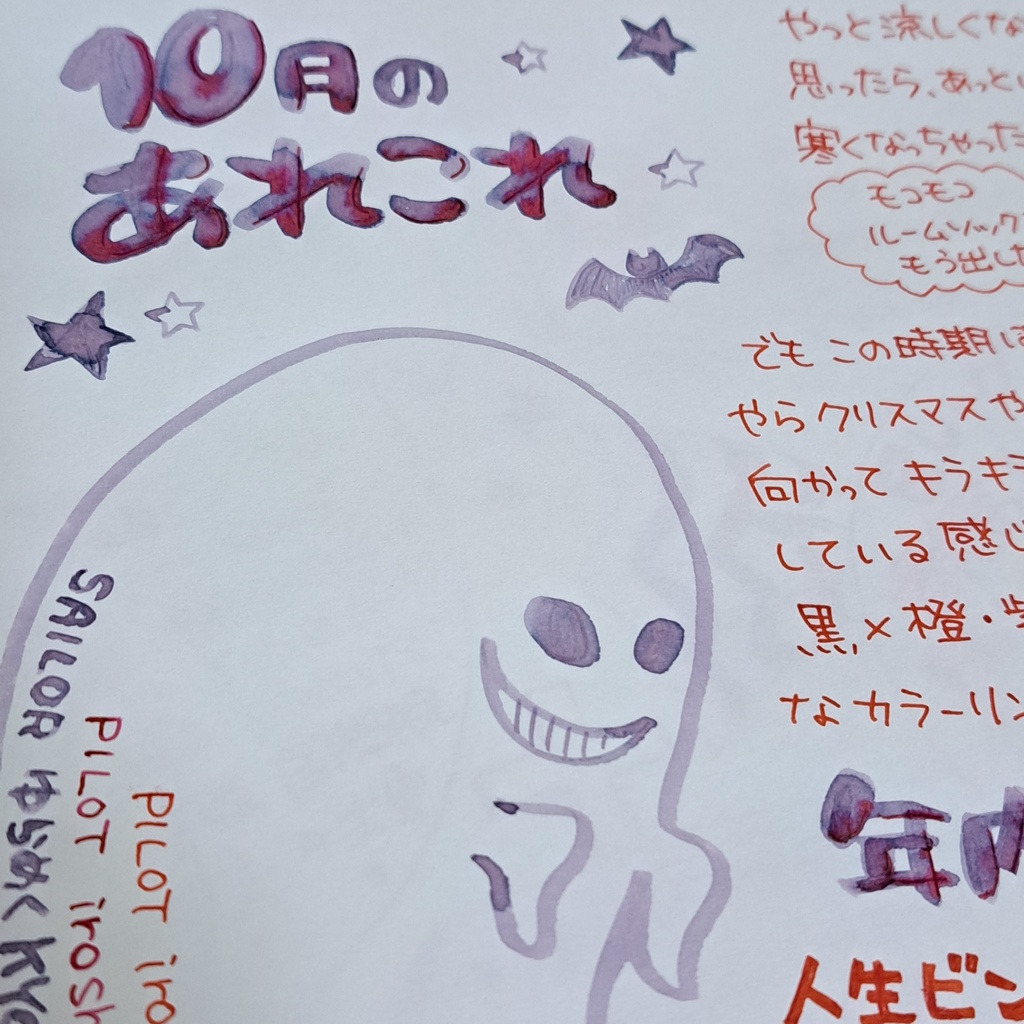 10月の
あれこれ
やっと涼しくな
思ったら、あっとい
寒くなっちゃった
モコモコ
ルームソックス
もう出した
でも この時期は
やらクリスマスや
向かって キラキラ
している感じ
黒×橙・紫
なカラーリン
年内
人生ビン
SAILOR ゆらめく KYO
PILOT irosh
PILOT iro